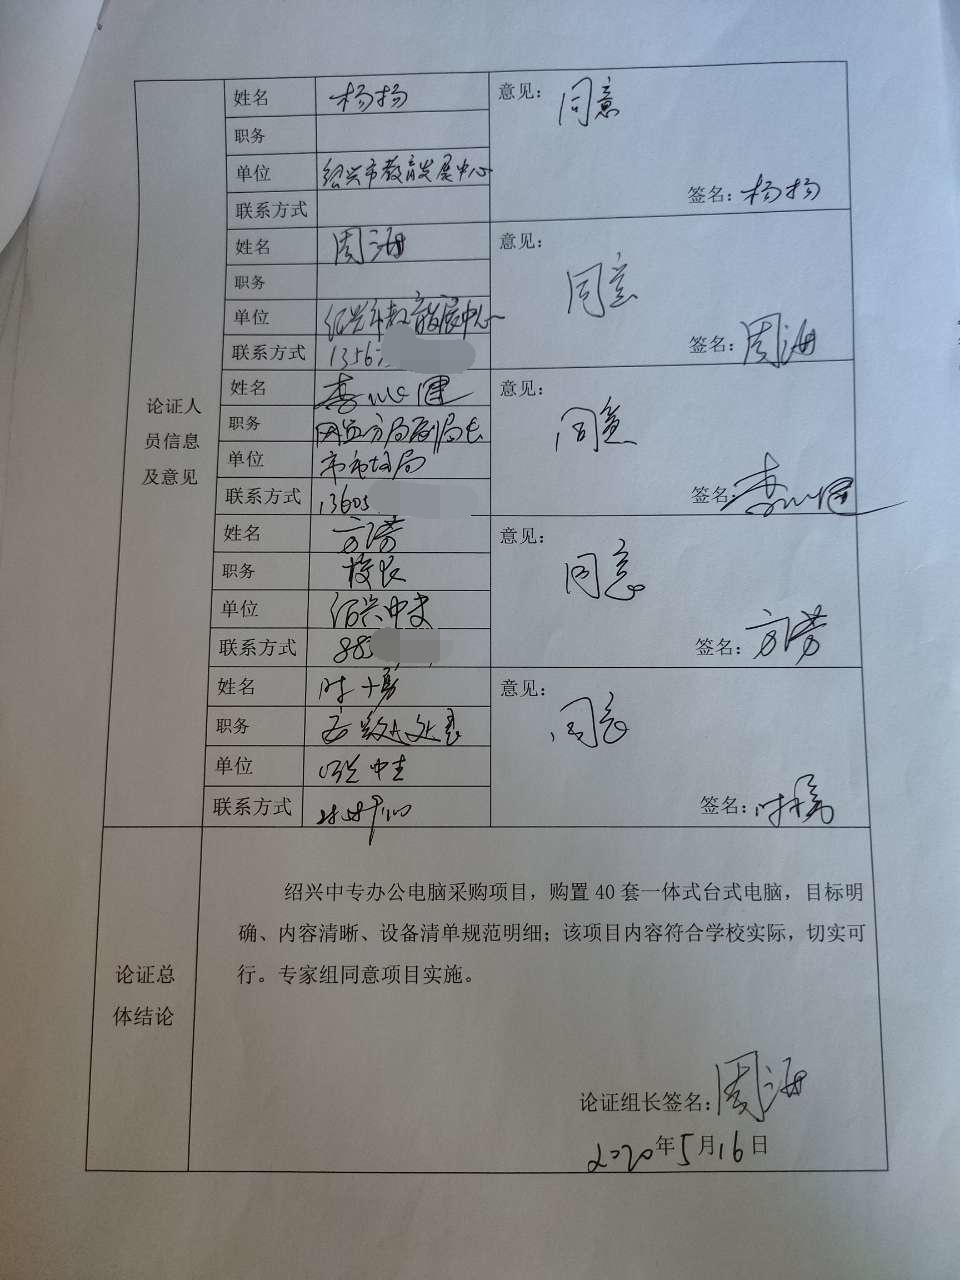 姓名 杨扬
意见： 同意
职务
单位 绍兴市教育发展中心
联系方式
签名：杨扬
姓名 周海
意见： 同意
职务
单位 绍兴市教育发展中心
联系方式 1356
签名：周海
论证人
员信息
及意见
姓名 李 健
意见： 同意
职务 分局副局长
单位 市市场局
联系方式 13605
签名：李 健
姓名 方芳
意见： 同意
职务 校长
单位 绍兴中专
联系方式 885
签名：方芳
姓名
意见： 同意
职务 处处长
单位 绍兴中专
联系方式
签名：
论证总
体结论
绍兴中专办公电脑采购项目，购置 40 套一体式台式电脑，目标明
确、内容清晰、设备清单规范明细；该项目内容符合学校实际，切实可
行。专家组同意项目实施。
论证组长签名：周海
2020年5月16日